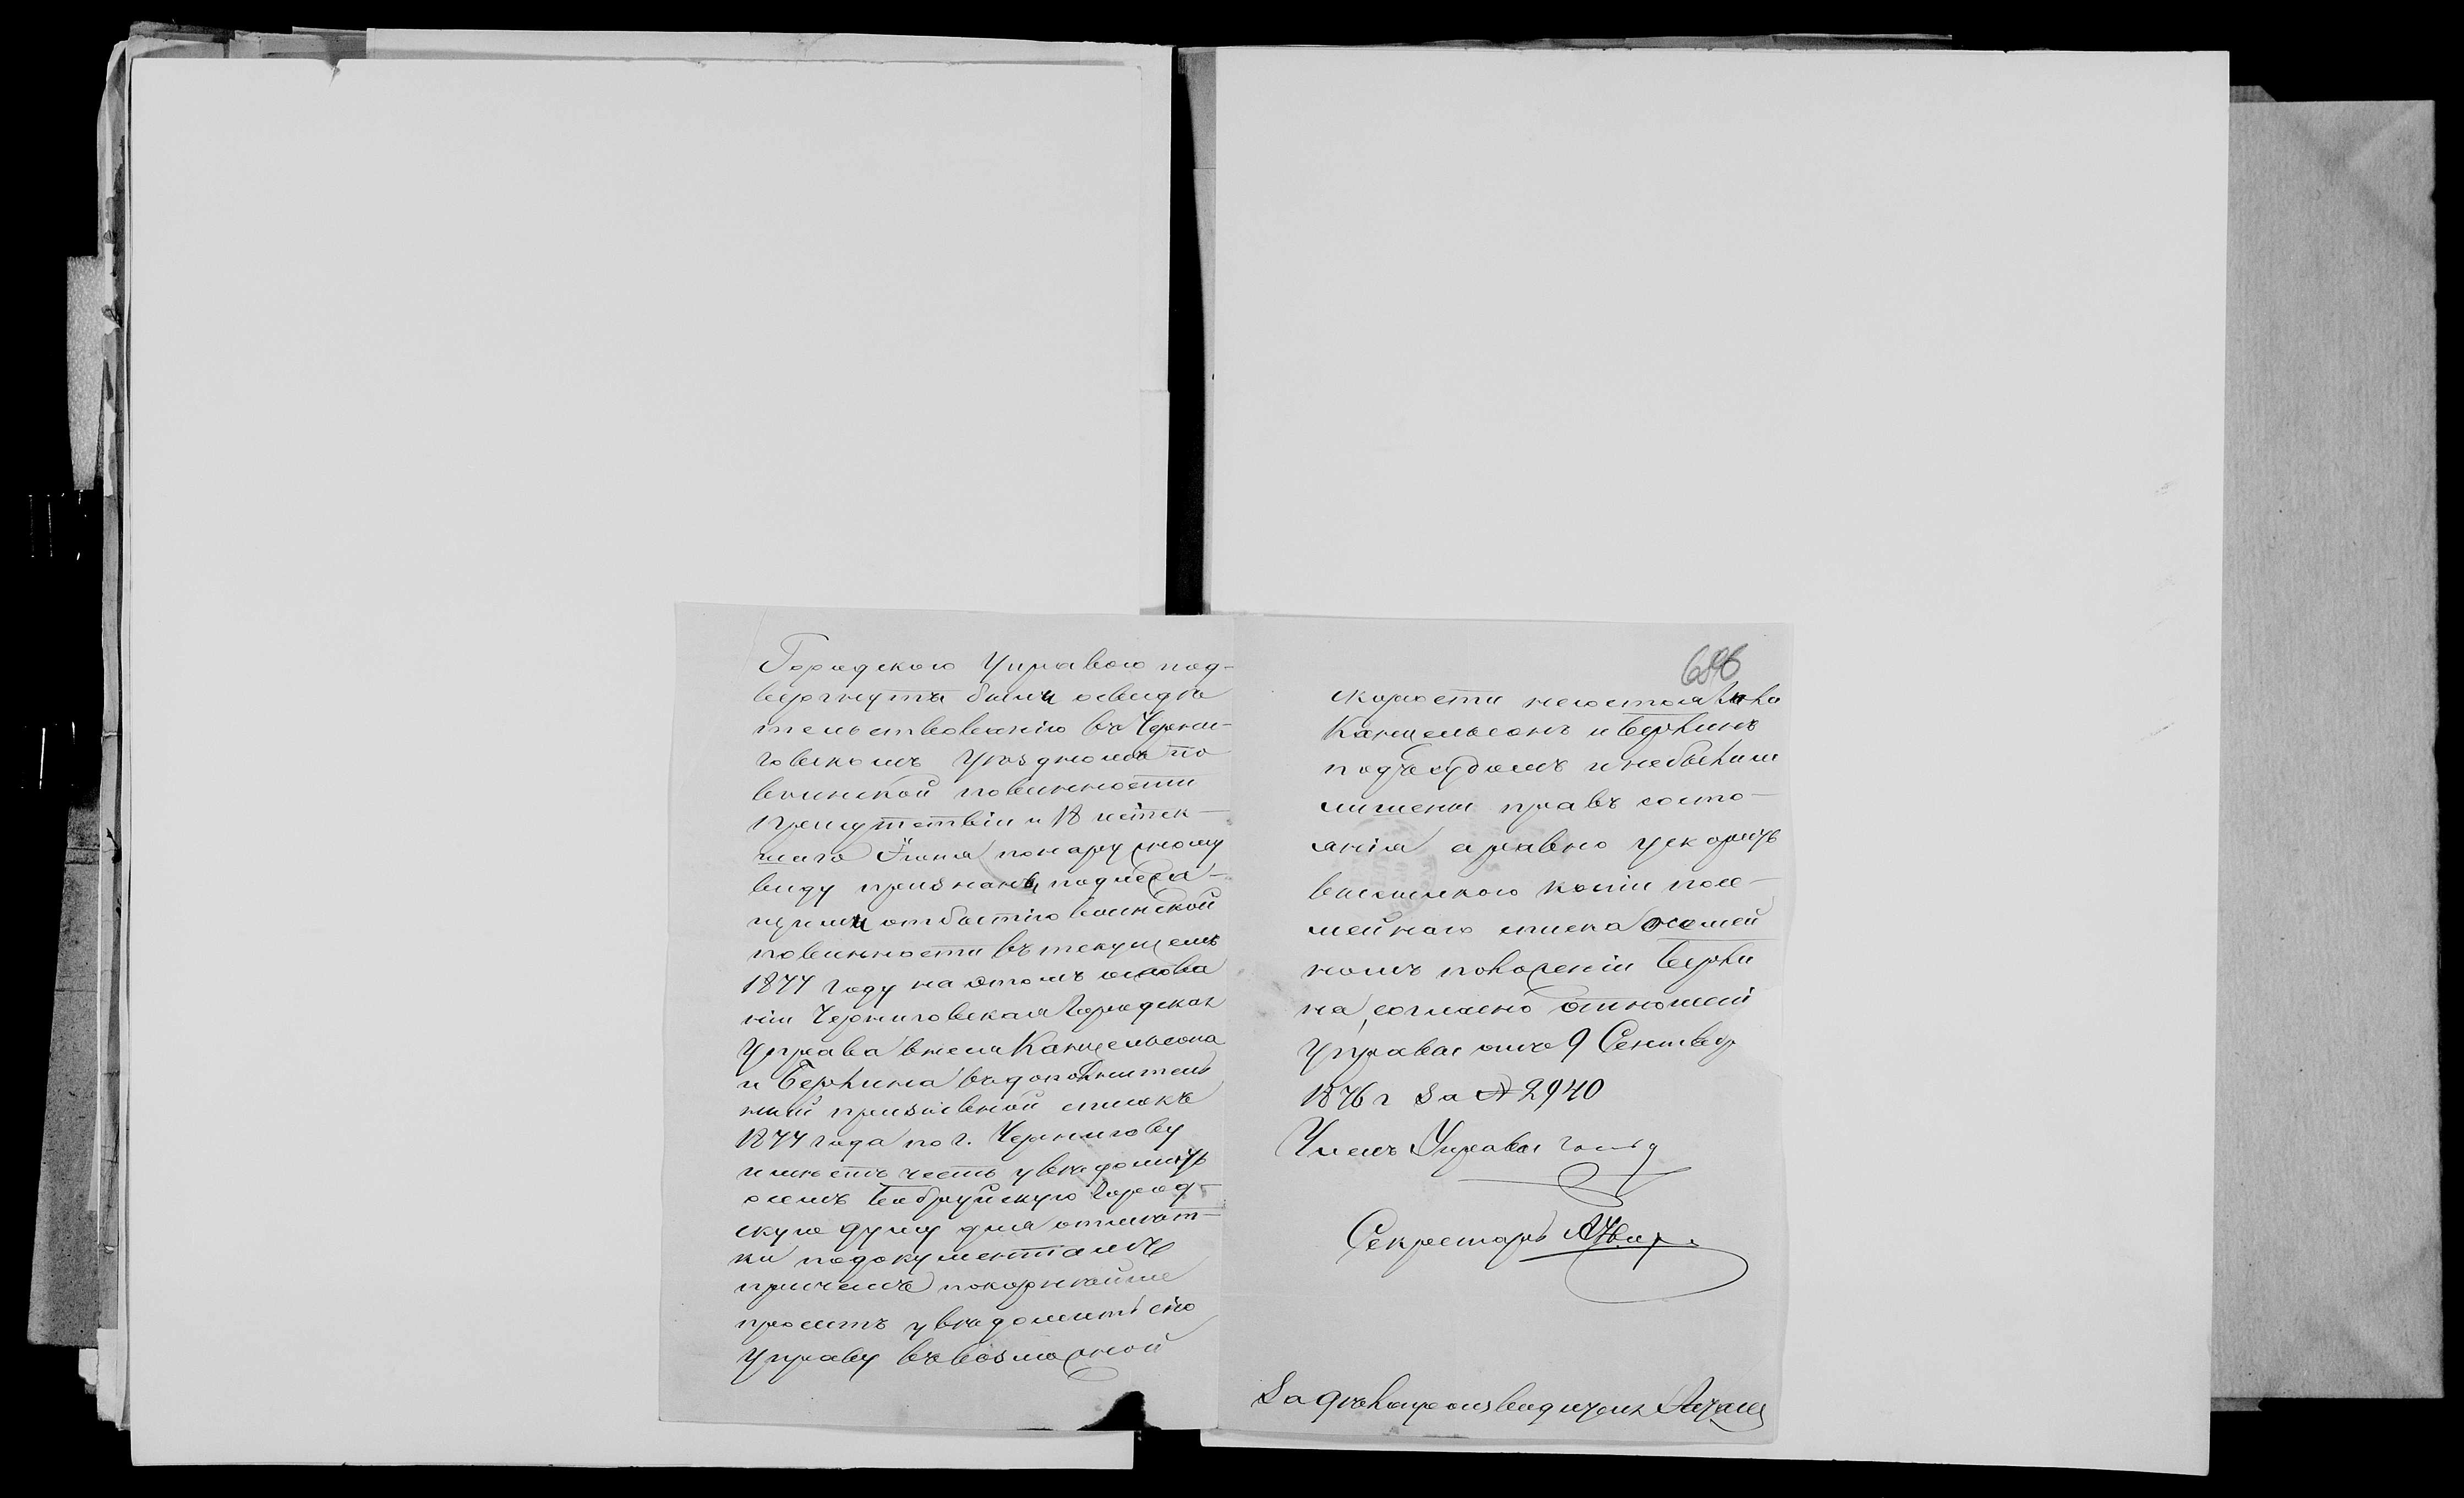 Городскою Управою под-
вергнуты были освидѣ
тельствованію въ Черни-
говскомъ Уѣздномъ по
воинской повинности
присутствіи и 18 истек-
шаго Іюня по наружному
виду признаны подлежа-
щими отбытію воинской
повинности въ текущемъ
1877 году на этомъ основа
ніи Черниговская Городская
Управа внеся Канцельсона
и Берлина въ дополнитель
ный призывной списокъ
1877 года по г. Чернигову
имѣетъ честь увѣдомить
о семъ Бобруйскую Город-
скую Думу для отмѣт-
ки по документамъ
причемъ покорнѣйше
проситъ увѣдомить сію
Управу въ возможной
696
скорости несостояли ли
Канцельсонъ и Берлинъ
подъ судомъ и небыли ли
лишены правъ состо-
янія а равно ускорить
высылкою копіи посе-
мейнаго списка о семей
номъ положеніи Берли
на, согласно отношенія
Управы отъ 9 Сентября
1876 г за № 2940
Членъ Управы
Секретарь
За дѣлопроизводителя